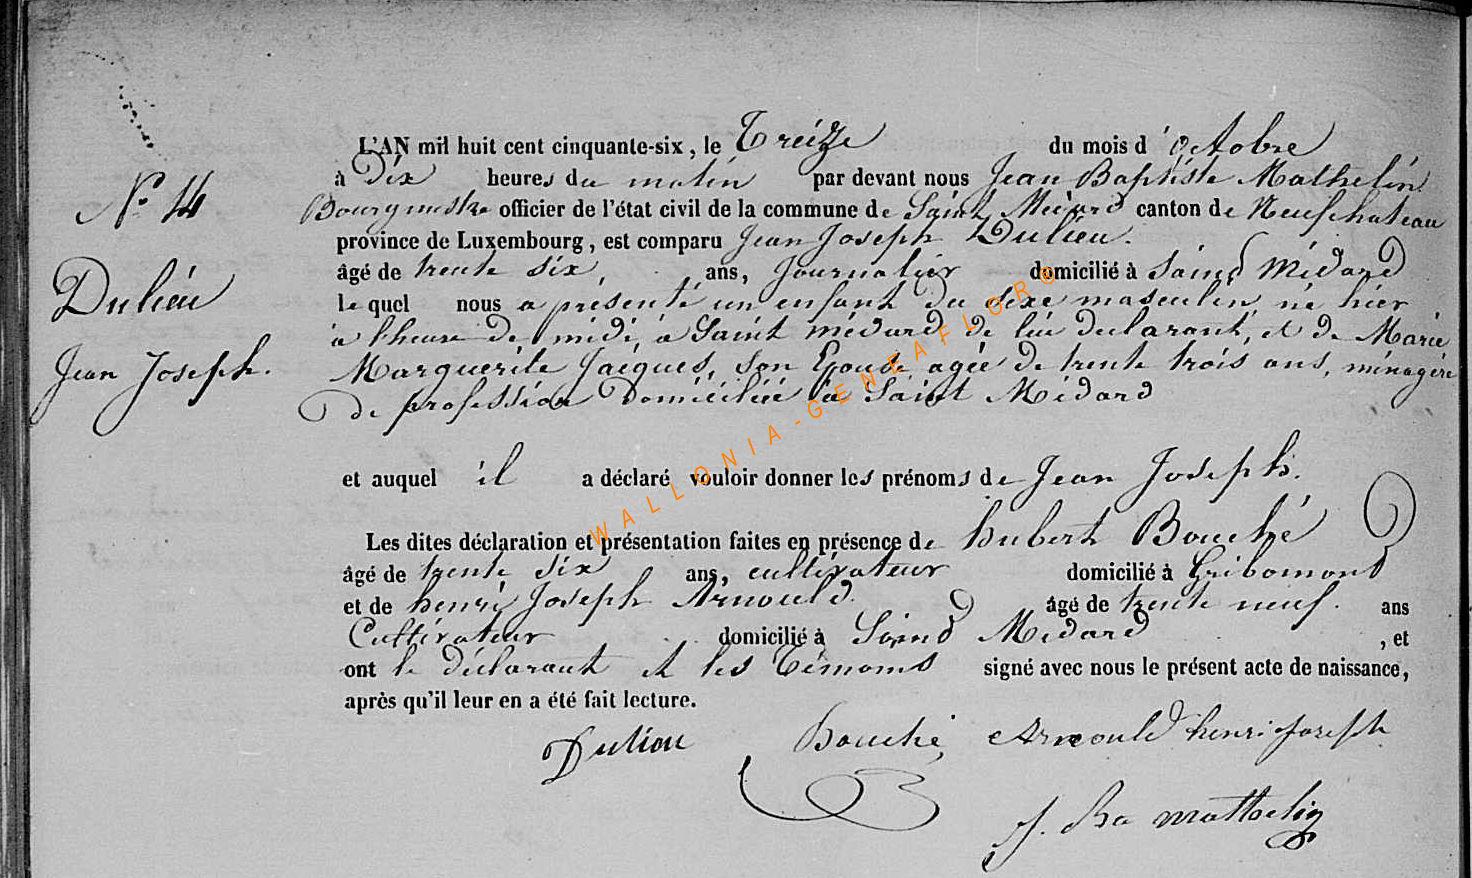 L'AN mil huit cent cinquante-six, le Treize du mois d'octobre
à Dix heures du matin par devant nous Jean Baptiste Mathelin
N° 14
Bourgmestre officier de l'état civil de la commune de Saint Médard canton de Neufchateau
province de Luxembourg, est comparu Jean Joseph Dulieu.
âgé de trente six, ans, Journalier domicilié à Saind Médard
Dulieu
le quel nous a présenté un enfant du sexe masculin né hier
à l'heure de midi, à Saint médard de lui declarant, et de Marie
Jean Joseph.
Marguerite Jacques, son Epouse agée de trente trois ans, ménagère
de profession Domiciliée à Saint Médard
et auquel il a déclaré vouloir donner les prénoms de Jean Joseph.
Les dites déclaration et présentation faites en présence de hubert Bouché
âgé de trente six ans, cultivateur domicilié à Gribomond
et de henri Joseph Arnould. âgé de trente neuf. ans
Cultivateur domicilié à Saind Médard, et
ont le déclarant et les Témoins signé avec nous le présent acte de naissance,
après qu'il leur en a été fait lecture.
Dulieu Bouché Arnould henri joseph
J. Ba mathelin
WALLONIA-GENEAFLORG